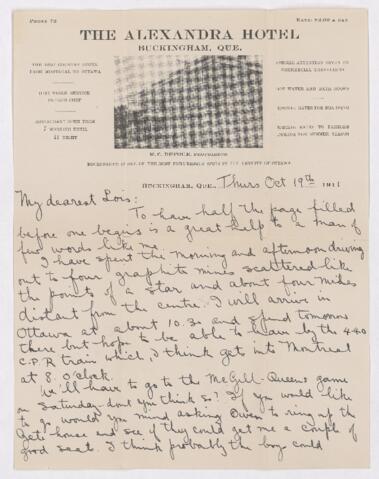 PHONE 72
RATE: $2.00 A DAY
THE ALEXANDRA HOTEL
BUCKINGHAM, QUE.
THE BEST COUNTRY HOTEL
FROM MONTREAL TO OTTAWA
FIRST CLASS SERVICE
FRENCH CHEF
RESTAURANT OPEN FROM
7 MORNING UNTIL
12 NIGHT
SPECIAL ATTENTION GIVEN TO
COMMERCIAL TRAVELLERS
HOT WATER AND BATH ROOMS
SPECIAL RATES FOR
SPECIAL RATES TO FAMILIES
DURING THE SUMMER SEASON
PROPRIETOR
BUCKINGHAM IS ONE OF THE MOST PICTURESQUE SPOTS IN THE COUNTY OF OTTAWA
BUCKINGHAM, QUE. Thurs Oct 19th 1911
My dearest Lois:
To have half the page filled
before one begins is a great help to a man of
few words like me.
I have spent the morning and afternoon driving
out to four graphite mines scattered like
the points of a star and about four miles
distant from the centre. I will arrive in
Ottawa at about 10.30 and spend tomorrow
there but hope to be able to leave by the 4.40
C.P.R train which, I think gets into Montreal
at 8. O'clock.
We'll have to go to the McGill-Queens game
on Saturday - don't you think so? If you would like
to go would you mind asking Owen to ring up the
house and see if they could get me a couple of
good seats. I think probably the boys could